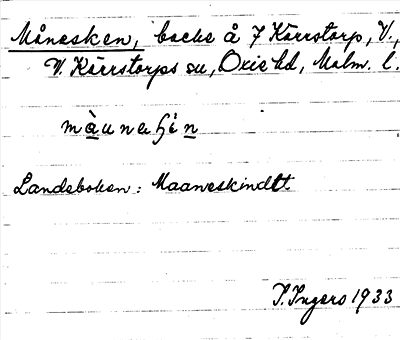 Månesken, backe å 7 Kärrstorp, V.,
V. Kärrstorps sn, Oxie hd, Malm. l.
Landeboken: Maaneskindtt
I. Ingers 1933